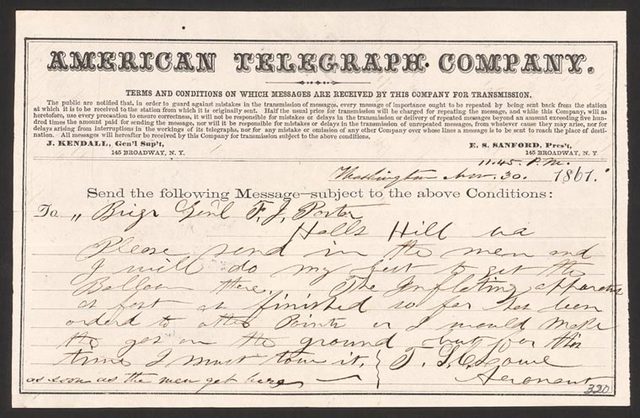 AMERICAN TELEGRAPH COMPANY.
TERMS AND CONDITIONS ON WHICH MESSAGES ARE RECEIVED BY THIS COMPANY FOR TRANSMISSION.
The public are notified that, in order to guard against mistakes in the transmission of messages, every message of importance ought to be repeated by being sent back from the station
at which it is to be received to the station from which it is originally sent. Half the usual price for transmission will be charged for repeating the message, and while this Company, will as
heretofore, use every precaution to ensure correctness, it will not be responsible for mistakes or delays in the transmission or delivery of repeated messages beyond an amount exceeding five hun-
dred times the amount paid for sending the message, nor will it be responsible for mistakes or delays in the transmission of unrepeated messages, from whatever cause they may arise, nor for
delays arising from interruptions in the workings of its telegraphs, nor for any mistake or omission of any other Company over whose lines a message is to be sent to reach the place of desti-
nation. All messages will hereafter be received by this Company for transmission subject to the above conditions.
J. KENDALL, Gen'l Sup't, E. S. SANFORD, Pres't,
145 BROADWAY, N. Y. 145 BROADWAY, N. Y.
11.45 P.M.
Washington Nov. 30. 1861.
Send the following Message subject to the above Conditions:
To " Brigr Genl F. J. Porter
Halls Hill va
Please send in the men and
I will do my best to get the
Balloon there. The Inflating apparatus
as fast as finished so far has been
orderd to other Points or I would make
the gas on the ground but for this
time I must tow it. T. S. C. Lowe
as soon as the men get here Aeronaut
320